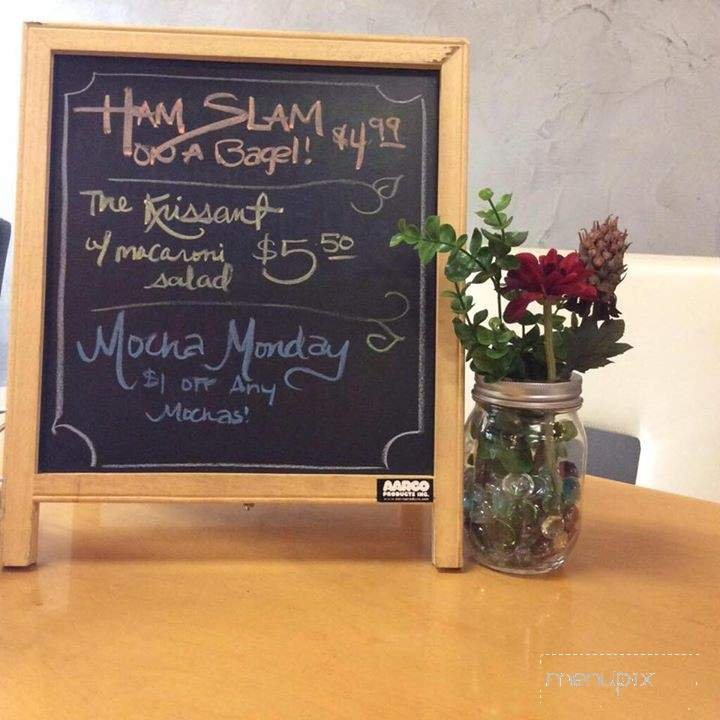 HAM SLAM
ON A Bagel! $4.99
The Krissant
w/ macaroni $5.50
salad
Mocha Monday
$1 OFF Any
Mochas!
AARCO
PRODUCTS INC.
menupix